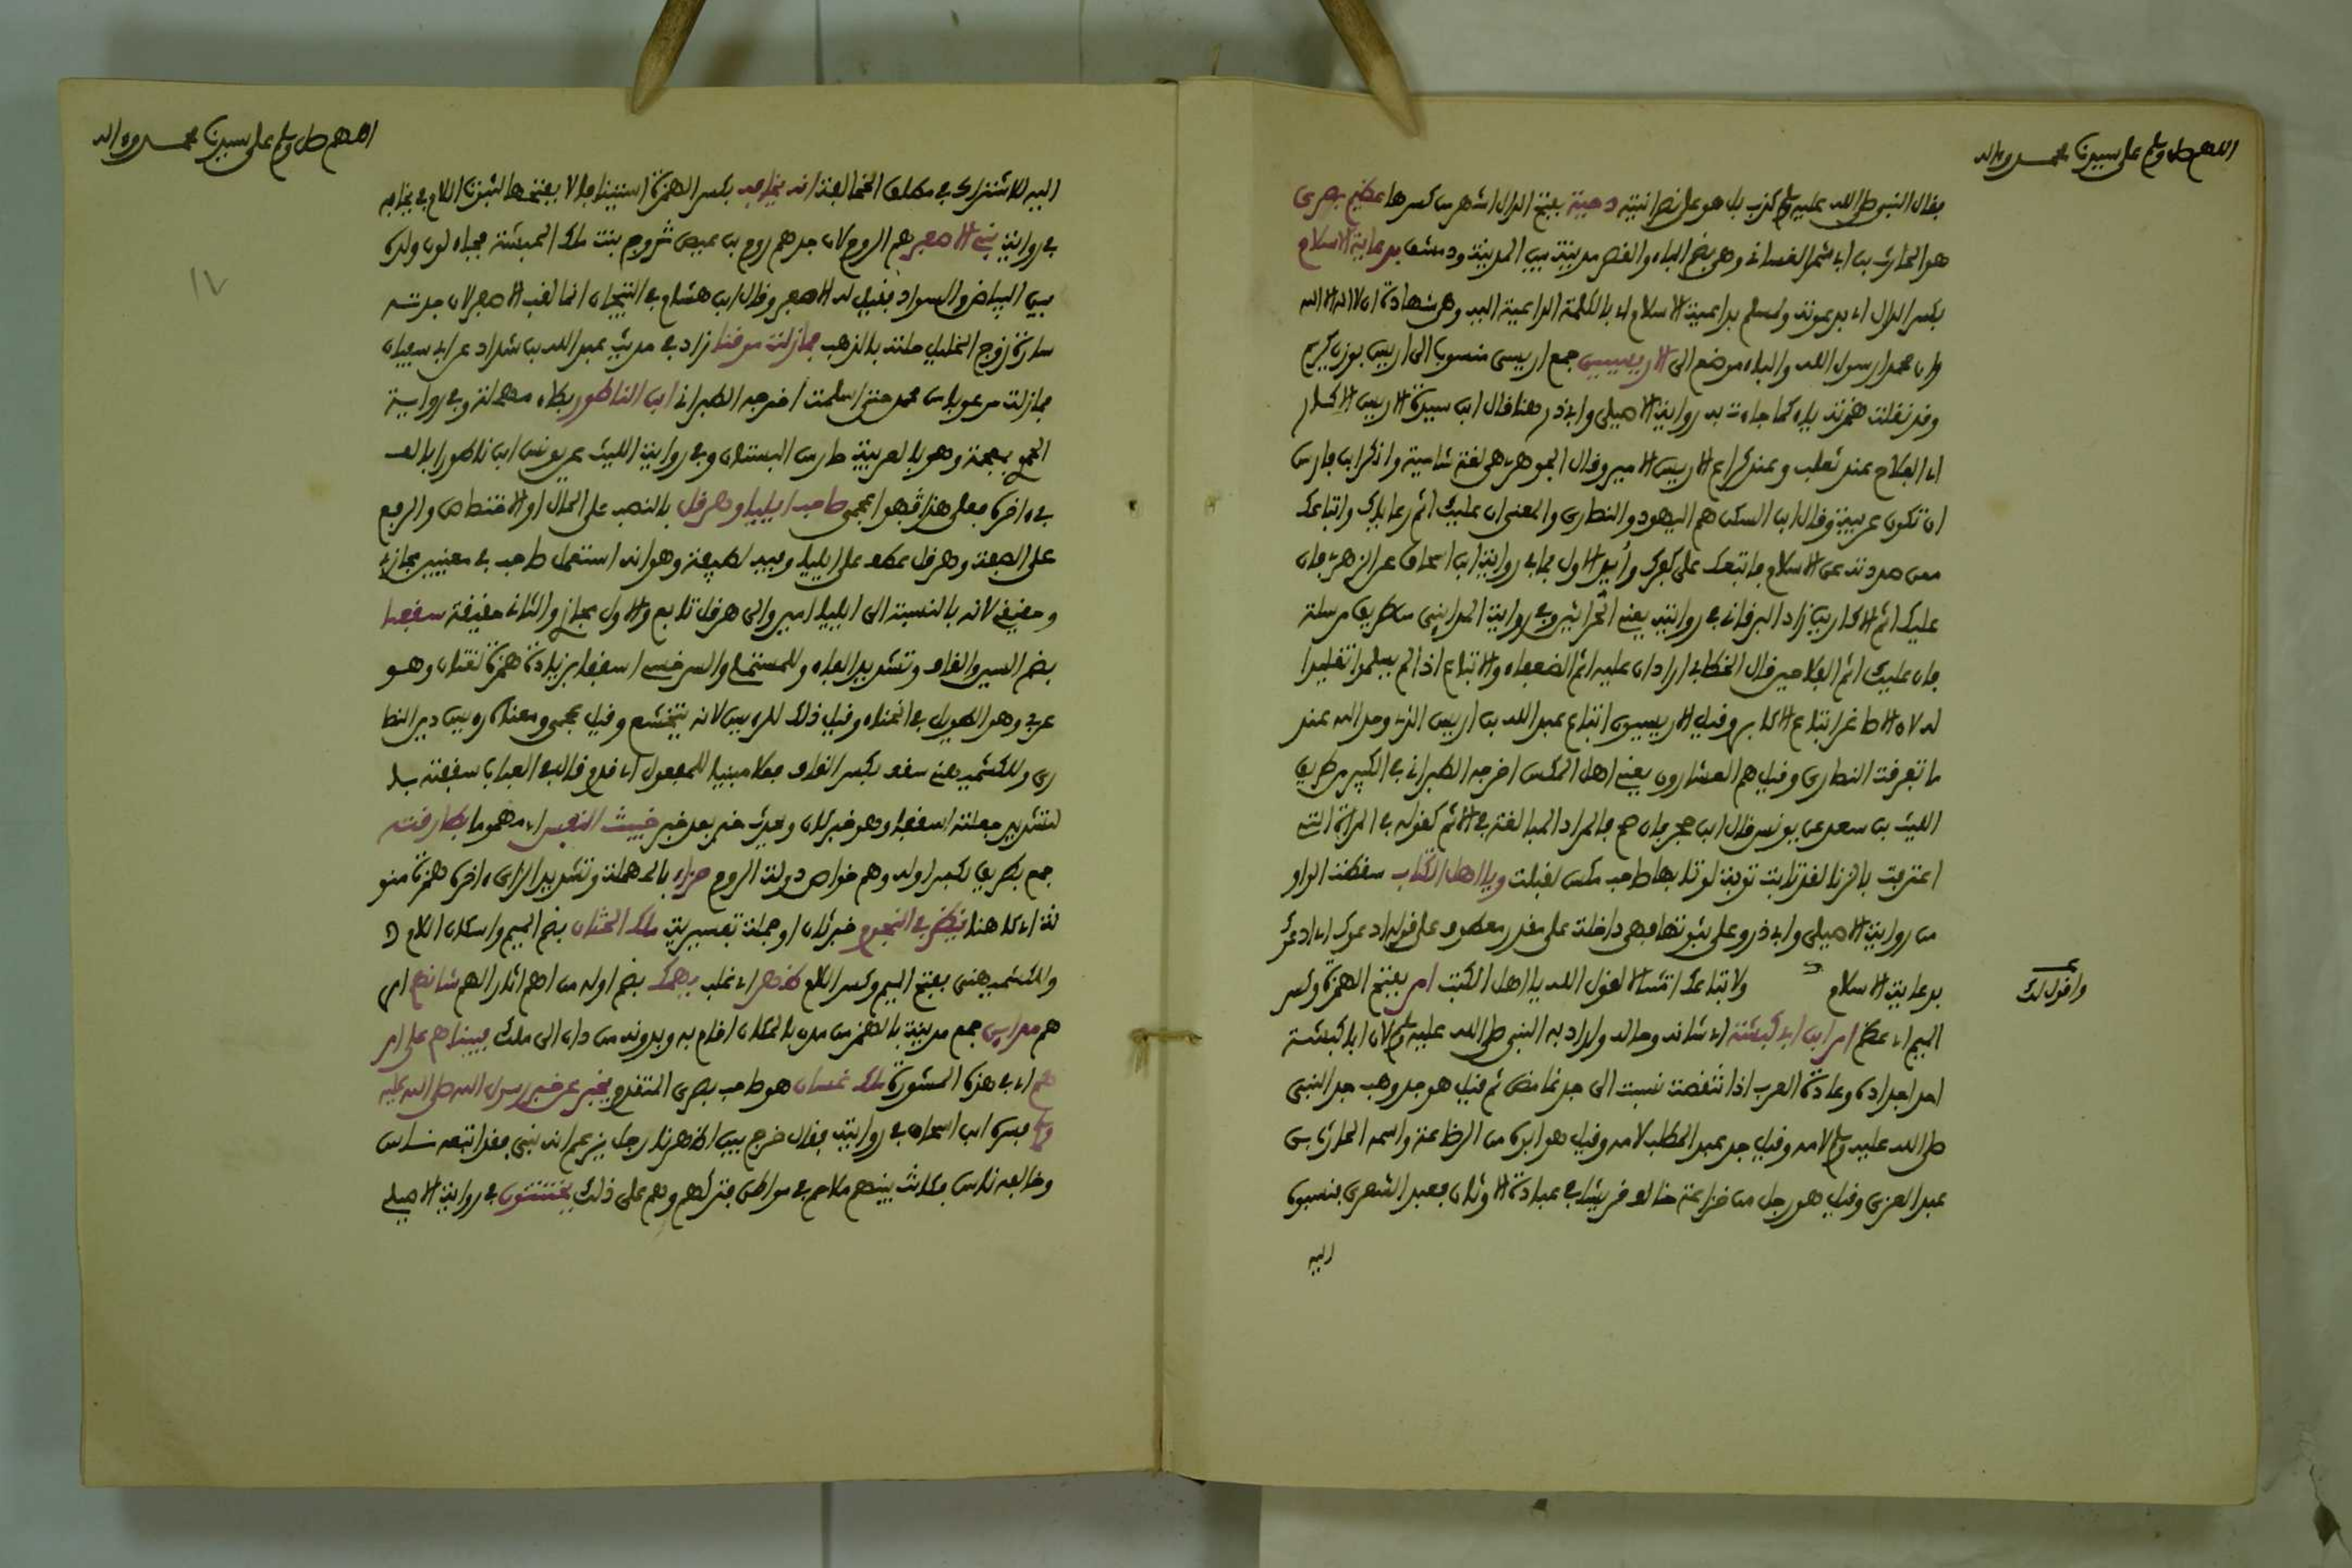 اللهم صل وسلم على سيدنا محمد وءاله
فقال النبي صلى الله عليه وسلم كذب بل هو على نصرانيته دحية بفتح الدال اشهر من كسرها عظيم بصرى
هو الحارث بن ابي شمر الغساني وهي بضم الباء والقصر مدينة بين المدينة ودمشق بدعاية الاسلام
بكسر الدال اي بدعوته ولمسلم بداعية الاسلام اي بالكلمة الداعية اليه وهي شهادة ان لا اله الا الله
وان محمدا رسول الله والباء موضع الى الاريسيين جمع اريسي منسوب الى اريس بوزن كريم
وقد تقلب همزته ياء كما جاءت به رواية الاصيلي وابي ذر هنا قال ابن سيدة الاريس الاكار
اي الفلاح عند ثعلب وعند كراع الاريس الامير وقال الجوهري هي لغة شامية وانكر ابن فارس
ان تكون عربية وقال ابن السكن هم اليهود والنصارى والمعنى ان عليك اثم رعاياك واتباعك
ممن صددته عن الاسلام فاتبعك على كفرك وايد الاول بما في رواية ابن اسحاق عن الزهري فان
عليك اثم الاكارين زاد البرقاني في روايته يعني الحراثين وفي رواية المدايني من طريق مرسلة
فان عليك اثم الفلاحين قال الخطابي اراد ان عليه اثم الضعفاء والاتباع اذا لم يسلموا تقليدا
له لان الاصاغر اتباع الاكابر وقيل الاريسيون اتباع عبد الله بن اريس الذي وحد الله عند
ما تفرقت النصارى وقيل هم العشارون يعني اهل المكس اخرجه الطبراني في الكبير من طريق
الليث بن سعد عن يونس قال ابن حجر فان صح فالمراد المبالغة في الاثم كقوله في المراة التي
اعترفت بالزنا لقد تابت توبة لو تابها صاحب مكس لقبلت ويا اهل الكتاب سقطت الواو
من رواية الاصيلي وابي ذر وعلى ثبوتها فهي داخلة على مقدر معطوف على قوله ادعوك اي ادعوك
بدعاية الاسلام ولاتباعك امتثالا لقول الله يا اهل الكتب امر بفتح الهمزة وكسر
واقول لك
الميم اي عظم امر ابن ابي كبشة اي شانه وحاله واراد به النبي صلى الله عليه وسلم لان ابا كبشة
احد اجداده وعادة العرب اذا تنقصت نسبت الى جد غامض ثم قيل هو جد وهب جد النبي
صلى الله عليه وسلم لامه وقيل جد عبد المطلب لامه وقيل هو ابوه من الرضاعة واسمه الحارث بن
عبد العزى وقيل هو رجل من خزاعة خالف قريشا في عبادة الاوثان فعبد الشعرى فنسبوه
اليه
اللهم صل وسلم على سيدنا محمد وءاله
اليه للاشتراك في مطلق المخالفة انه يخافه بكسر الهمزة استينافا لا بفتحها لثبوت اللام في يخافه
في رواية بني الاصفر هم الروم لان جدهم روم بن عيص تزوج بنت ملك الحبشة فجاء لون ولده
١٧
بين البياض والسواد فقيل له الاصفر وقال ابن هشام في التيجان انما لقب الاصفر لان جدته
سارة زوج الخليل حلته بالذهب فمازلت موقنا زاد في حديث عبد الله بن شداد عن ابي سفيان
فمازلت مرعوبا من محمد حتى اسلمت اخرجه الطبراني ابن الناطور بطاء مهملة وفي رواية
الحموي بمعجمة وهو بالعربية حارس البستان وفي رواية الليث عن يونس ابن ناطورا بالف
في ءاخره فعلى هذا فهو اعجمي صاحب ايلياء وهرقل بالنصب على الحال او الاختصاص والرفع
على الصفة وهرقل عطف على ايلياء وفيه لطيفة وهو انه استعمل صاحب في معنيين مجازي
وحقيقي لانه بالنسبة الى ايلياء امير والى هرقل تابع والاول مجاز والثاني حقيقة سقفا
بضم السين والقاف وتشديد الفاء وللمستملي والسرخسي اسقفا بزيادة همزة لغتان وهو
عربي وهو الطويل في انحناء وقيل ذلك للرءيس لانه يتخشع وقيل عجمي ومعناه رءيس دين النصا
رى وللكشميهني سقف بكسر القاف فعلا مبنيا للمفعول اي قدم قال في العباب سقفته با
لتشديد جعلته اسقفا وهو خبر كان ويحدث خبر بعد خبر خبيث النفس اي مهموما بطارقته
جمع بطريق بكسر اوله وهم خواص دولة الروم حزاء بالمهملة وتشديد الزاي ءاخره همزة منو
نة اي كاهنا ينظر في النجوم خبر ثان او جملة تفسيرية ملك الختان بضم الميم واسكان اللام
وللكشميهني بفتح الميم وكسر اللام ظهر اي غلب يهمك بضم اوله من اهم اثار الهم شانهم امر
هم مداين جمع مدينة بالهمز من مدن بالمكان اقام به وبدونه من دان الى ملك فبيناهم على امر
هم اي في هذه المشورة ملك غسان هو صاحب بصرى المتقدم يخبر عن خبر رسول الله صلى الله عليه
وسلم فسره ابن اسحاق في روايته فقال خرج بين اظهرنا رجل يزعم انه نبي فقد اتبعه ناس
وخالفه ناس فكانت بينهم ملاحم في مواطن فتركتهم وهم على ذلك يختتنون في رواية الاصيلي